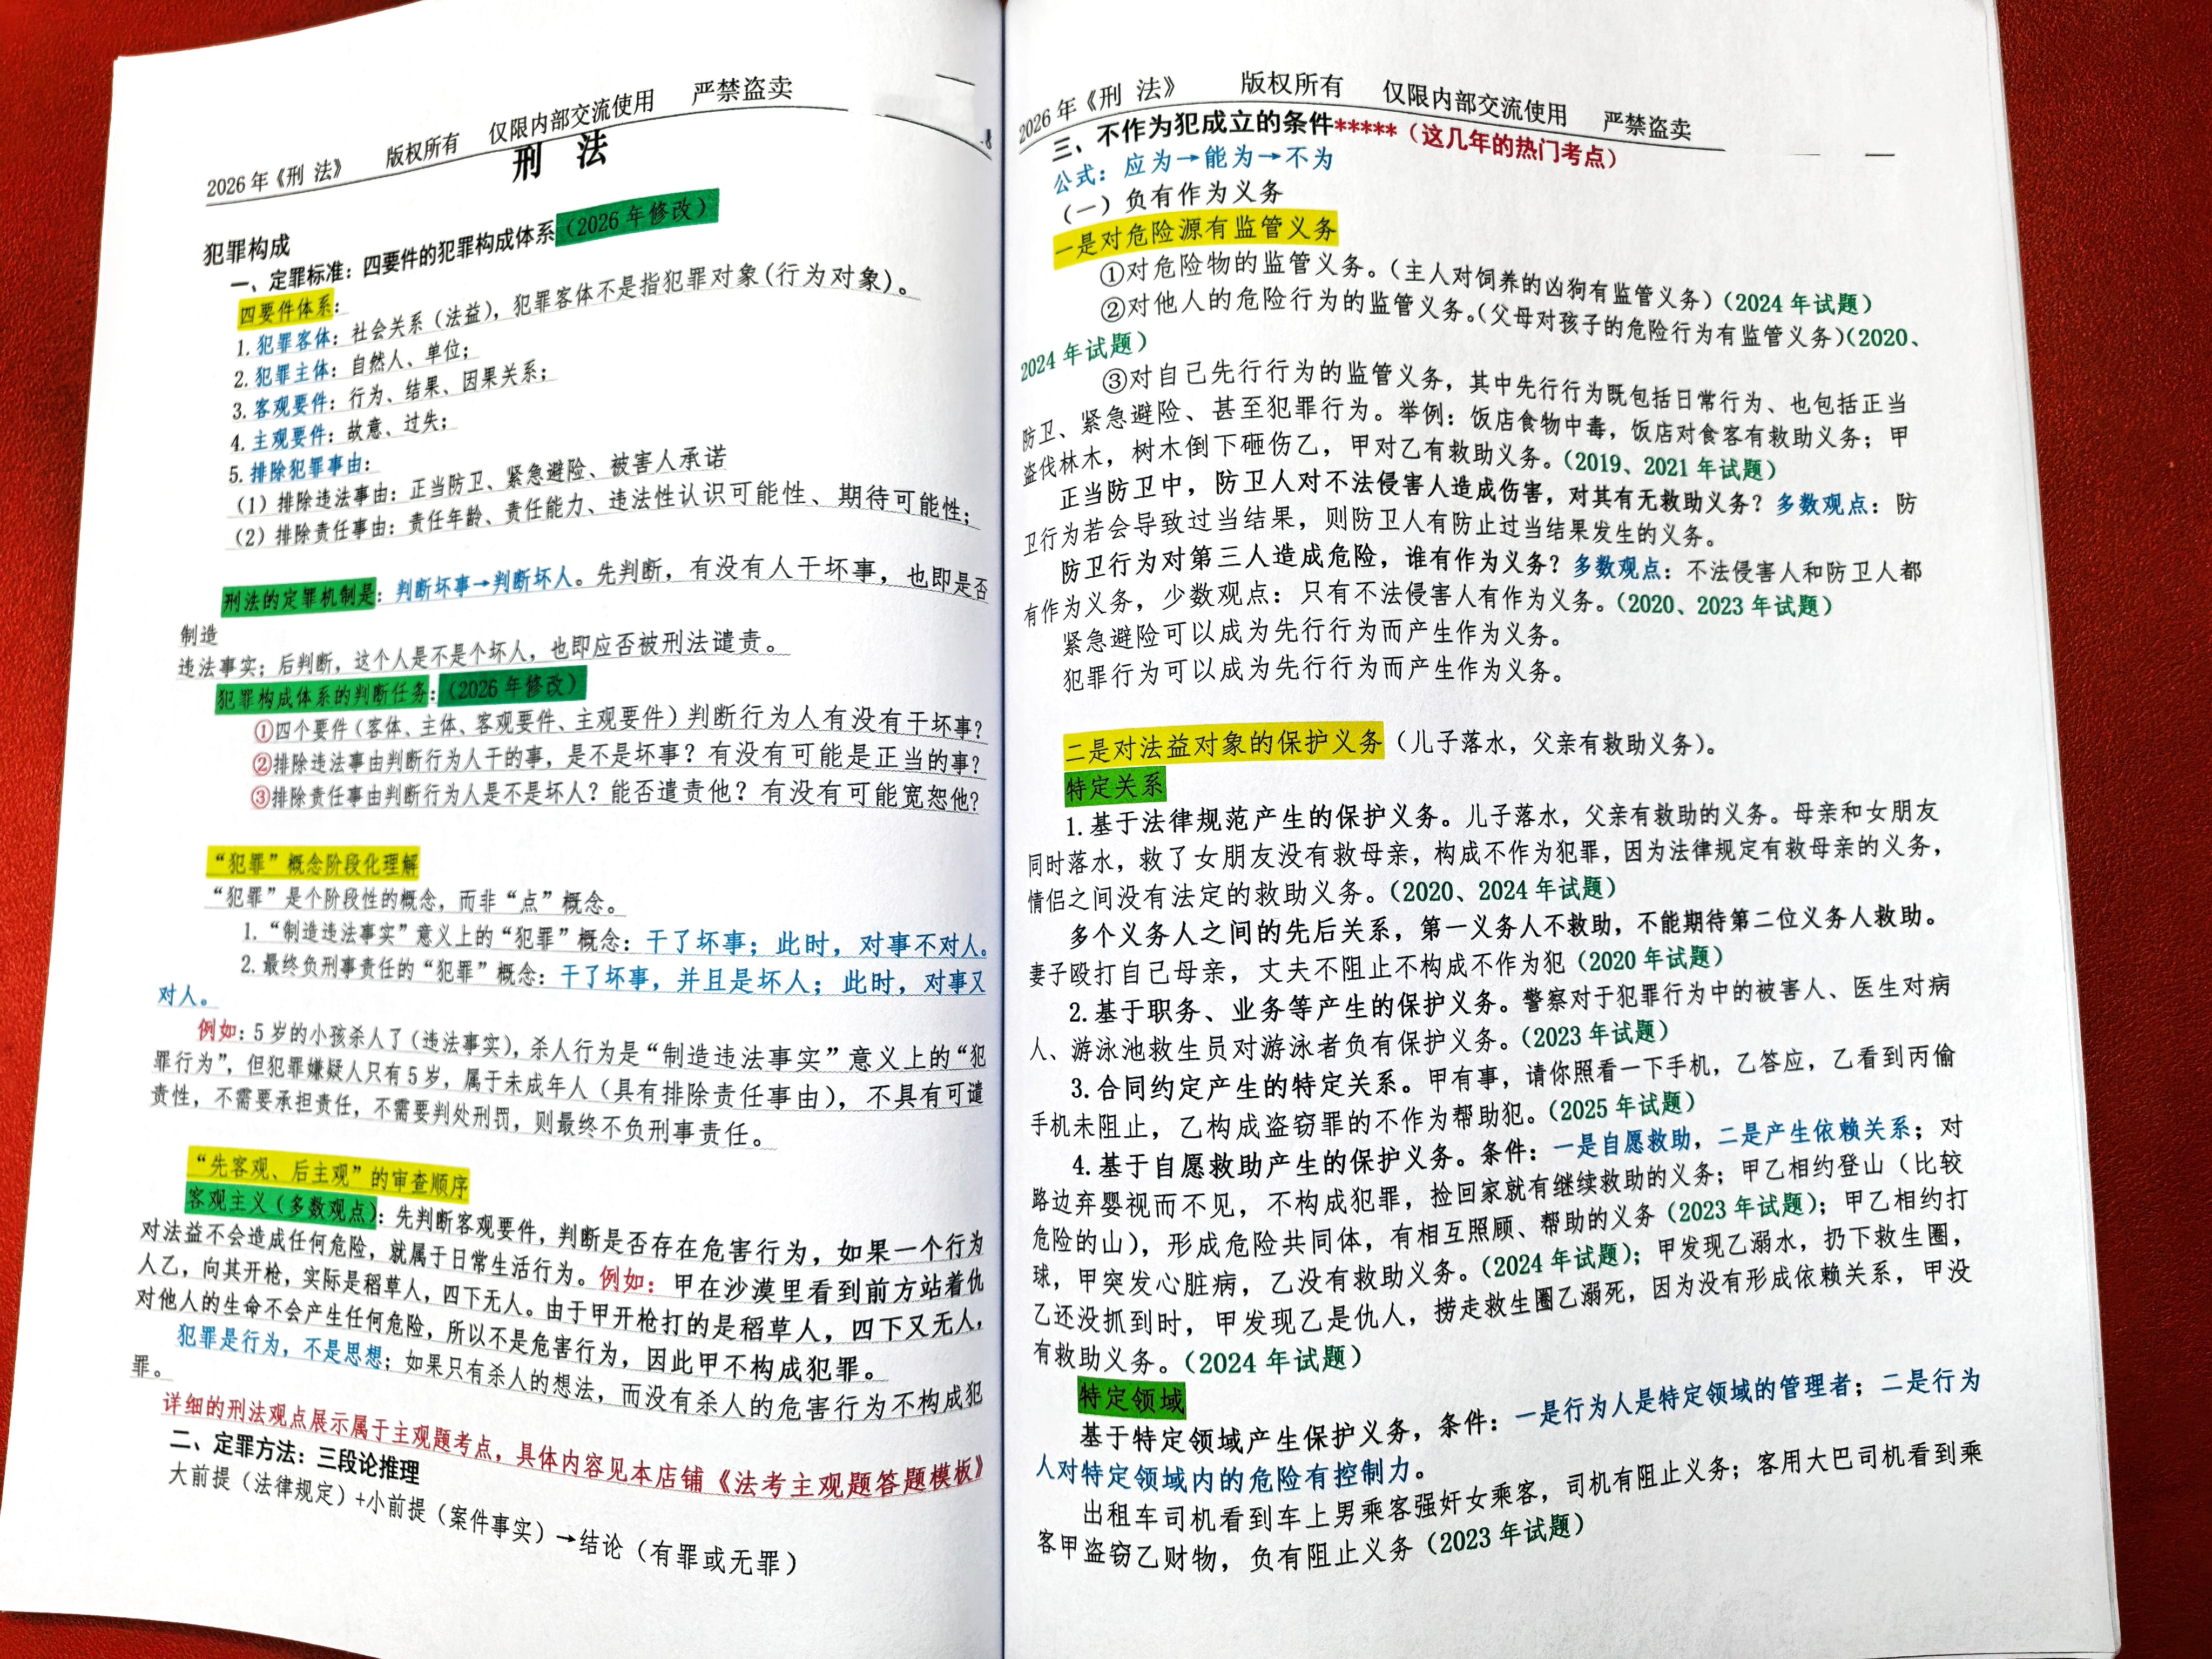 2026年《刑 法》 版权所有 仅限内部交流使用 严禁盗卖
刑 法
犯罪构成
一、定罪标准：四要件的犯罪构成体系（2026年修改）
四要件体系：
1.犯罪客体：社会关系（法益），犯罪客体不是指犯罪对象(行为对象)。
2.犯罪主体：自然人、单位；
3.客观要件：行为、结果、因果关系；
4.主观要件：故意、过失；
5.排除犯罪事由：
（1）排除违法事由：正当防卫、紧急避险、被害人承诺
（2）排除责任事由：责任年龄、责任能力、违法性认识可能性、期待可能性；
刑法的定罪机制是：判断坏事→判断坏人。先判断，有没有人干坏事，也即是否
制造
违法事实；后判断，这个人是不是个坏人，也即应否被刑法谴责。
犯罪构成体系的判断任务：（2026年修改）
①四个要件（客体、主体、客观要件、主观要件）判断行为人有没有干坏事？
②排除违法事由判断行为人干的事，是不是坏事？有没有可能是正当的事？
③排除责任事由判断行为人是不是坏人？能否谴责他？有没有可能宽恕他？
“犯罪”概念阶段化理解
“犯罪”是个阶段性的概念，而非“点”概念。
1.“制造违法事实”意义上的“犯罪”概念：干了坏事；此时，对事不对人。
2.最终负刑事责任的“犯罪”概念：干了坏事，并且是坏人；此时，对事又
对人。
例如：5岁的小孩杀人了（违法事实），杀人行为是“制造违法事实”意义上的“犯
罪行为”，但犯罪嫌疑人只有5岁，属于未成年人（具有排除责任事由），不具有可谴
责性，不需要承担责任，不需要判处刑罚，则最终不负刑事责任。
“先客观、后主观”的审查顺序
客观主义（多数观点）：先判断客观要件，判断是否存在危害行为，如果一个行为
对法益不会造成任何危险，就属于日常生活行为。例如：甲在沙漠里看到前方站着仇
人乙，向其开枪，实际是稻草人，四下无人。由于甲开枪打的是稻草人，四下又无人，
对他人的生命不会产生任何危险，所以不是危害行为，因此甲不构成犯罪。
犯罪是行为，不是思想；如果只有杀人的想法，而没有杀人的危害行为不构成犯
罪。
详细的刑法观点展示属于主观题考点，具体内容见本店铺《法考主观题答题模板》
二、定罪方法：三段论推理
大前提（法律规定）+小前提（案件事实）→结论（有罪或无罪）
2026年《刑 法》 版权所有 仅限内部交流使用 严禁盗卖
三、不作为犯成立的条件*****（这几年的热门考点）
公式：应为→能为→不为
（一）负有作为义务
一是对危险源有监管义务
①对危险物的监管义务。（主人对饲养的凶狗有监管义务）（2024年试题）
②对他人的危险行为的监管义务。（父母对孩子的危险行为有监管义务）（2020、
2024年试题）
③对自己先行行为的监管义务，其中先行行为既包括日常行为、也包括正当
防卫、紧急避险、甚至犯罪行为。举例：饭店食物中毒，饭店对食客有救助义务；甲
盗伐林木，树木倒下砸伤乙，甲对乙有救助义务。（2019、2021年试题）
正当防卫中，防卫人对不法侵害人造成伤害，对其有无救助义务？多数观点：防
卫行为若会导致过当结果，则防卫人有防止过当结果发生的义务。
防卫行为对第三人造成危险，谁有作为义务？多数观点：不法侵害人和防卫人都
有作为义务，少数观点：只有不法侵害人有作为义务。（2020、2023年试题）
紧急避险可以成为先行行为而产生作为义务。
犯罪行为可以成为先行行为而产生作为义务。
二是对法益对象的保护义务（儿子落水，父亲有救助义务）。
特定关系
1.基于法律规范产生的保护义务。儿子落水，父亲有救助的义务。母亲和女朋友
同时落水，救了女朋友没有救母亲，构成不作为犯罪，因为法律规定有救母亲的义务，
情侣之间没有法定的救助义务。（2020、2024年试题）
多个义务人之间的先后关系，第一义务人不救助，不能期待第二位义务人救助。
妻子殴打自己母亲，丈夫不阻止不构成不作为犯（2020年试题）
2.基于职务、业务等产生的保护义务。警察对于犯罪行为中的被害人、医生对病
人、游泳池救生员对游泳者负有保护义务。（2023年试题）
3.合同约定产生的特定关系。甲有事，请你照看一下手机，乙答应，乙看到丙偷
手机未阻止，乙构成盗窃罪的不作为帮助犯。（2025年试题）
4.基于自愿救助产生的保护义务。条件：一是自愿救助，二是产生依赖关系；对
路边弃婴视而不见，不构成犯罪，捡回家就有继续救助的义务；甲乙相约登山（比较
危险的山），形成危险共同体，有相互照顾、帮助的义务（2023年试题）；甲乙相约打
球，甲突发心脏病，乙没有救助义务。（2024年试题）；甲发现乙溺水，扔下救生圈，
乙还没抓到时，甲发现乙是仇人，捞走救生圈乙溺死，因为没有形成依赖关系，甲没
有救助义务。（2024年试题）
特定领域
基于特定领域产生保护义务，条件：一是行为人是特定领域的管理者；二是行为
人对特定领域内的危险有控制力。
出租车司机看到车上男乘客强奸女乘客，司机有阻止义务；客用大巴司机看到乘
客甲盗窃乙财物，负有阻止义务（2023年试题）